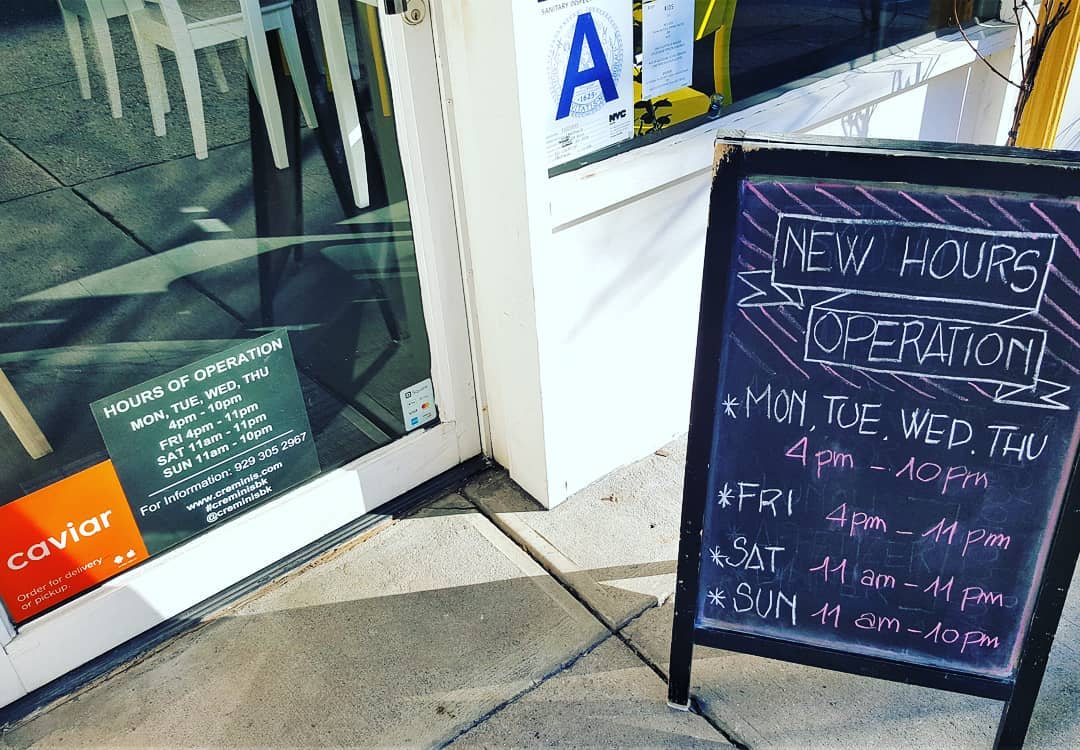 SANITARY INSPEC
A
NYC
HOURS OF OPERATION
MON, TUE, WED, THU
4pm - 10pm
FRI 4pm - 11pm
SAT 11am - 11pm
SUN 11am - 10pm
For Information: 929 305 2967
www.creminis.com
#creminisbk
@creminisbk
caviar
Order for delivery
or pickup
VISA
NEW HOURS
OPERATION
*MON, TUE. WED. THU
4pm - 10pm
*FRI 4pm - 11pm
*SAT 11am - 11pm
*SUN 11am - 10pm